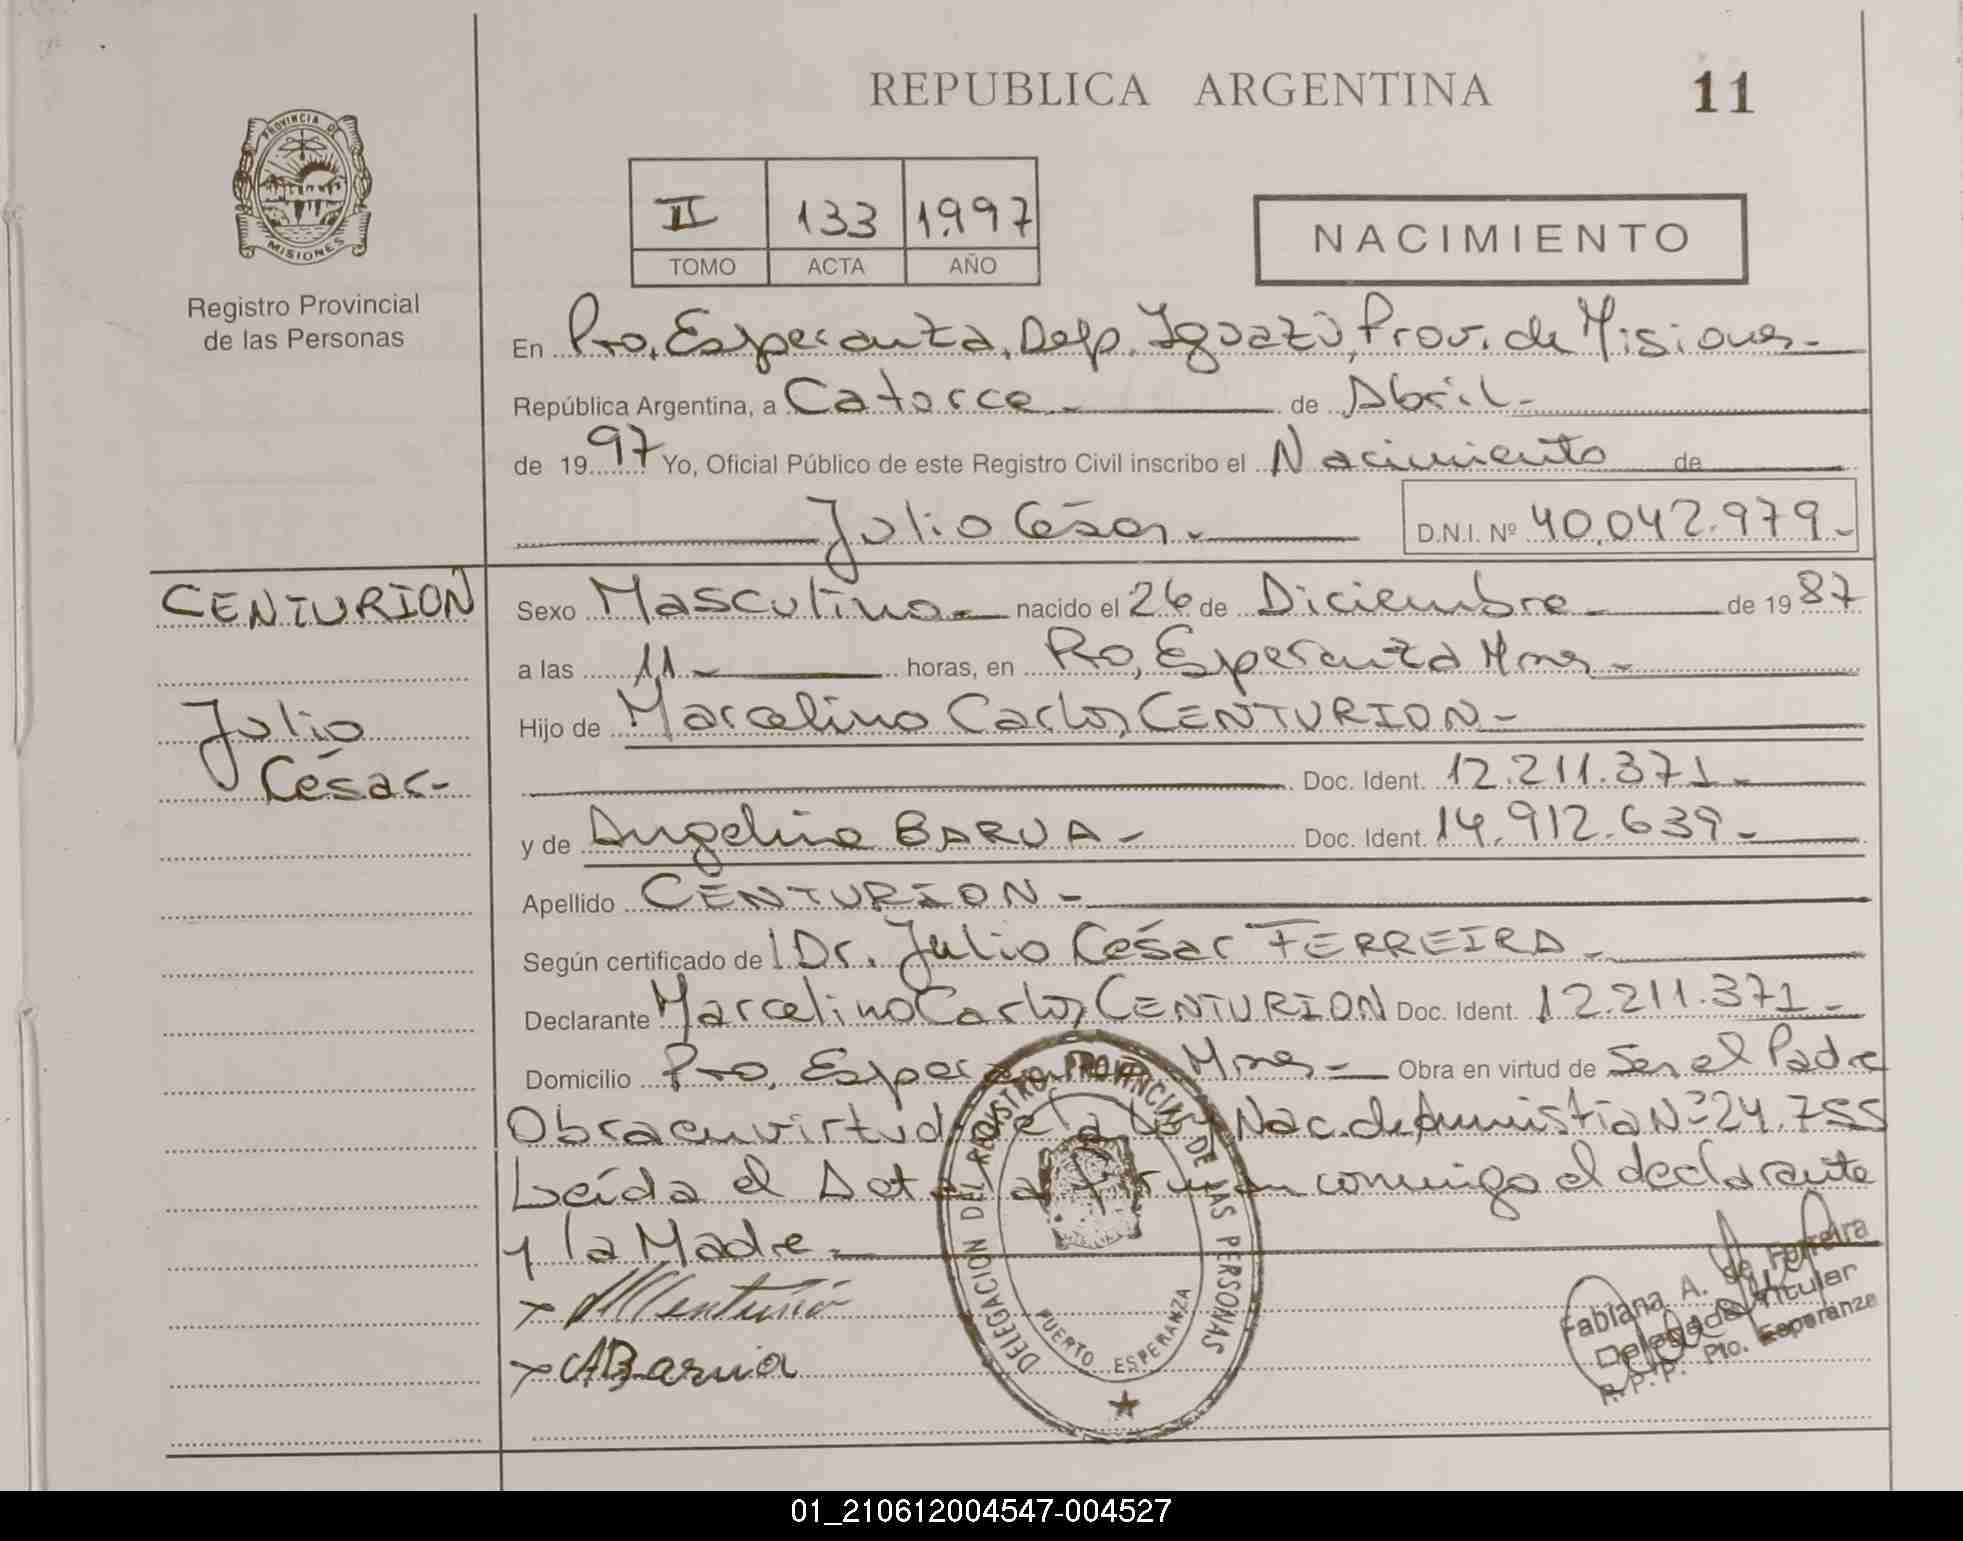 REPUBLICA ARGENTINA
11
PROVINCIA DE
MISIONES
Registro Provincial
de las Personas
II 133 1.997
TOMO ACTA AÑO
NACIMIENTO
En Pto. Esperanza, Dep. Iguazú, Prov. de Misiones-
República Argentina, a Catorce - de Abril -
de 1997 Yo, Oficial Público de este Registro Civil inscribo el Nacimiento de
Julio César - D.N.I. Nº 40.042.979.-
CENTURION
Julio
César-
Sexo Masculino - nacido el 26 de Diciembre - de 1987
a las 11 - horas, en Pto. Esperanza Mnes -
Hijo de Marcelino Carlos CENTURION -
Doc. Ident. 12.211.371 -
y de Angelina BARUA - Doc. Ident. 14.912.639 -
Apellido CENTURION -
Según certificado de Dr. Julio César FERREIRA -
Declarante Marcelino Carlos CENTURION Doc. Ident. 12.211.371 -
Domicilio Pto. Esperanza Mnes - Obra en virtud de Ser el Padre
Obra en virtud de la Ley Nac. de Amnistia Nº 24.755
Leída el Acta la firman conmigo el declarante
y la Madre -
x MCenturión
x ABarua
DELEGACION DEL REGISTRO PROVINCIAL DE LAS PERSONAS
PUERTO ESPERANZA
Fabiana A. de Ferreira
Delegada Titular
R.P.P. Pto. Esperanza
01_210612004547-004527